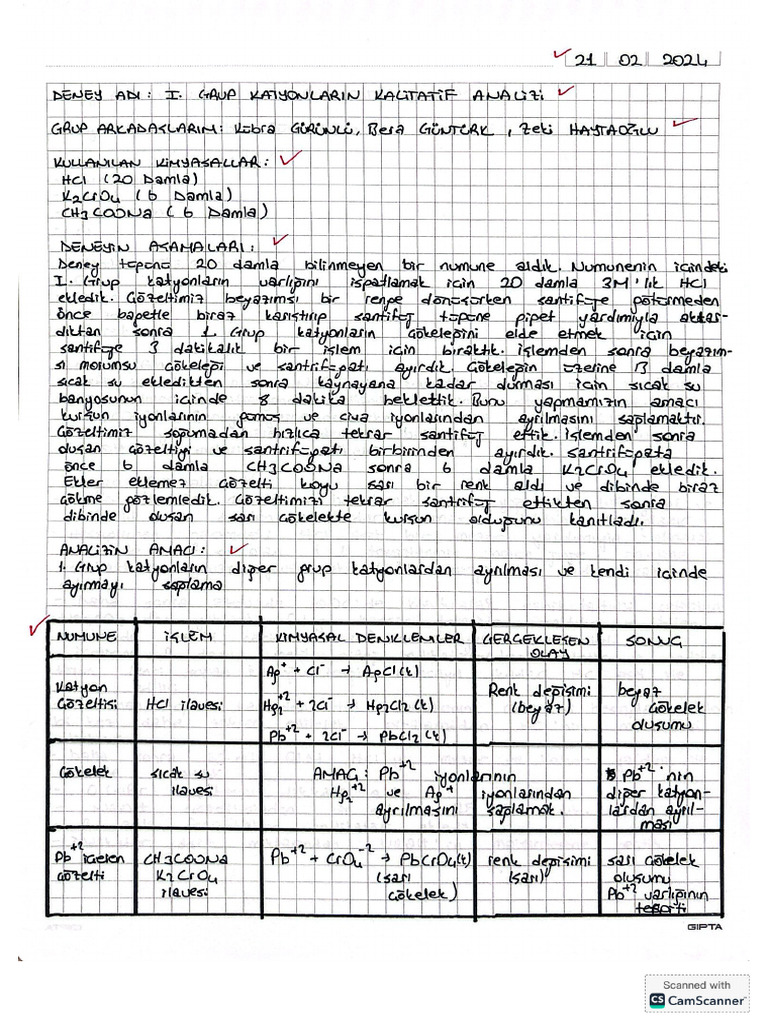 21 02 2024
DENEY ADI: I. GRUP KATYONLARIN KALİTATİF ANALİZİ
GRUP ARKADAŞLARIM: Kübra GÜRÜNLÜ, Bera GÜNTÜRK, Zeki HAYTAOĞLU
KULLANILAN KİMYASALLAR:
HCl (20 Damla)
K2CrO4 (6 Damla)
CH3COONa (6 Damla)
DENEYİN AŞAMALARI:
Deney tüpüne 20 damla bilinmeyen bir numune aldık. Numunenin içindeki
I. Grup katyonların varlığını ispatlamak için 20 damla 3M'lık HCl
ekledik. Çözeltimiz beyazımsı bir renge dönüşürken santifüje götürmeden
önce bagetle biraz karıştırıp santifüj tüpüne pipet yardımıyla aktar-
dıktan sonra 1. Grup katyonların çökeleğini elde etmek için
santifüje 3 dakikalık bir işlem için bıraktık. İşlemden sonra beyazım-
sı morumsu çökeleği ve santrifüpatı ayırdık. Çökeleğin üzerine 13 damla
sıcak su ekledikten sonra kaynayana kadar durması için sıcak su
banyosunun içinde 8 dakika beklettik. Bunu yapmamızın amacı
kurşun iyonlarının gümüş ve civa iyonlarından ayrılmasını sağlamaktır.
Çözeltimiz soğumadan hızlıca tekrar santifüj ettik. İşlemden sonra
oluşan çözeltiyi ve santrifüpatı birbirinden ayırdık. Santrifüpata
önce 6 damla CH3COONa sonra 6 damla K2CrO4 ekledik.
Ekler eklemez çözelti koyu sarı bir renk aldı ve dibinde biraz
çökme gözlemledik. Çözeltimizi tekrar santrifüj ettikten sonra
dibinde oluşan sarı çökelekte kurşun olduğunu kanıtladı.
ANALİZİN AMACI:
1. Grup katyonların diğer grup katyonlardan ayrılması ve kendi içinde
ayırmayı sağlama
NUMUNE İŞLEM KİMYASAL DENKLEMLER GERÇEKLEŞEN OLAY SONUÇ
Katyon Çözeltisi
HCl ilavesi
Ag+ + Cl- → AgCl(k)
Hg2+2 + 2Cl- → Hg2Cl2(k)
Pb+2 + 2Cl- → PbCl2(k)
Renk değişimi
(beyaz)
beyaz
çökelek
oluşumu
Çökelek
sıcak su
ilavesi
AMAÇ: Pb+2 iyonlarının
Hg2+2 ve Ag+ iyonlarından
ayrılmasını sağlamak.
Pb+2'nin
diğer katyon-
lardan ayrıl-
ması
Pb+2 içeren
çözelti
CH3COONa
K2CrO4
ilavesi
Pb+2 + CrO4-2 → PbCrO4(k)
(sarı
çökelek)
renk değişimi
(sarı)
sarı çökelek
oluşumu
Pb+2 varlığının
tespiti
GIPTA
Scanned with
CS CamScanner